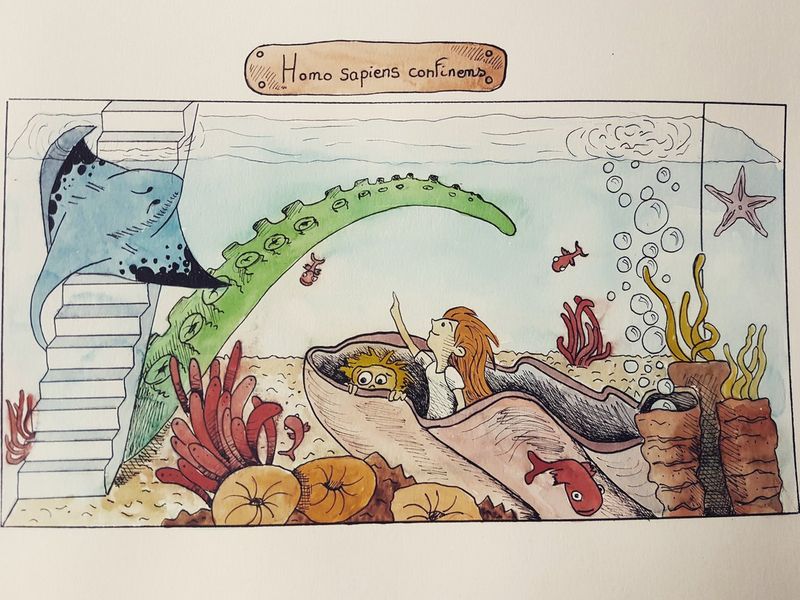 Homo sapiens confinens